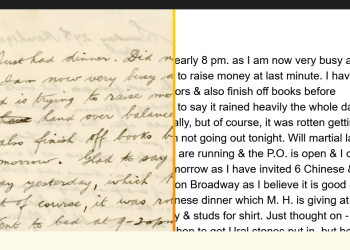 Just had dinner. Did n
am now very busy a
d is trying to raise mo
have hand over balance
also finish off books b
morrow. Glad to say
ay yesterday, which
t of course, it was rot
ent to bed at 9-30pm
early 8 pm. as I am now very busy a
to raise money at last minute. I hav
ors & also finish off books before
to say it rained heavily the whole da
ally, but of course, it was rotten getti
not going out tonight. Will martial la
are running & the P.O. is open & I c
morrow as I have invited 6 Chinese &
on Broadway as I believe it is good
nese dinner which M. H. is giving at
y & studs for shirt. Just thought on -